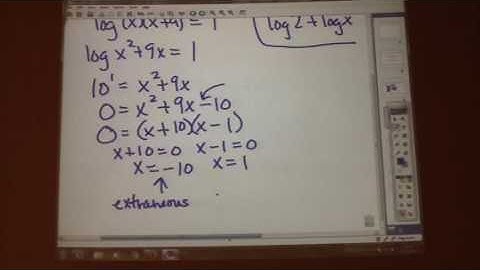 log (x)(x+9) = 1
log 2 + log x
log x² + 9x = 1
10¹ = x² + 9x
0 = x² + 9x - 10
0 = (x + 10)(x - 1)
x + 10 = 0 x - 1 = 0
x = -10 x = 1
extraneous